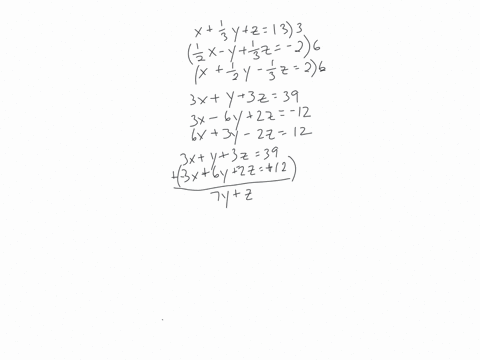 x + 1/3 y + z = 13) 3
(1/2 x - y + 1/3 z = -2) 6
(x + 1/2 y - 1/3 z = 2) 6
3x + y + 3z = 39
3x - 6y + 2z = -12
6x + 3y - 2z = 12
3x + y + 3z = 39
+(-3x + 6y + 2z = +12)
7y + z